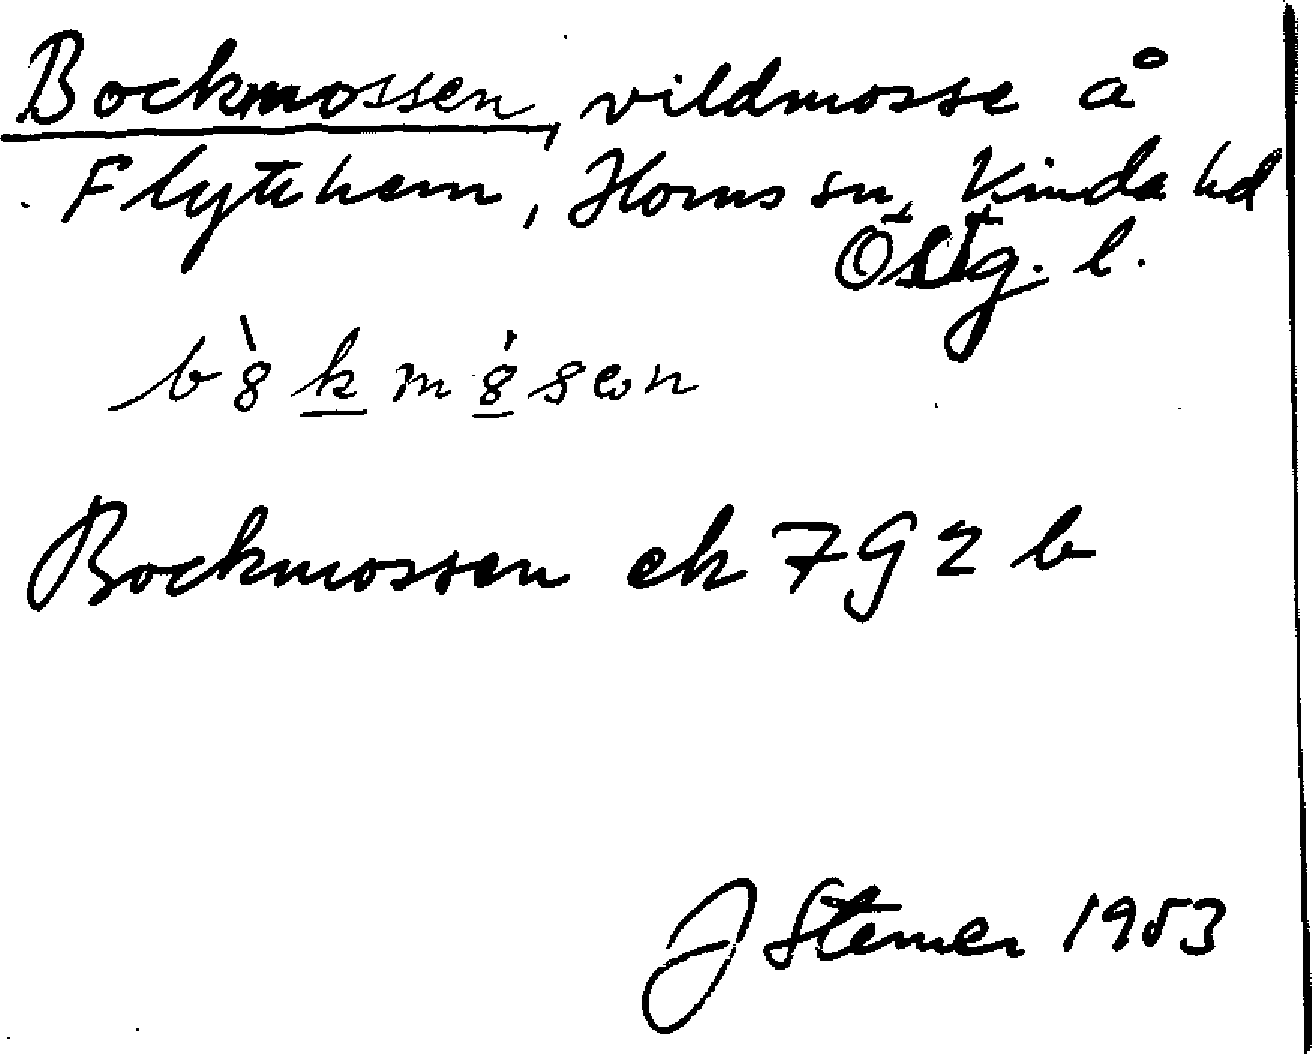 Bockmossen, vildmosse å
Flytthem, Horns sn, Kinda hd
Östg. l.
Bockmossen ek 7 G 2 b
J Sterner 1953